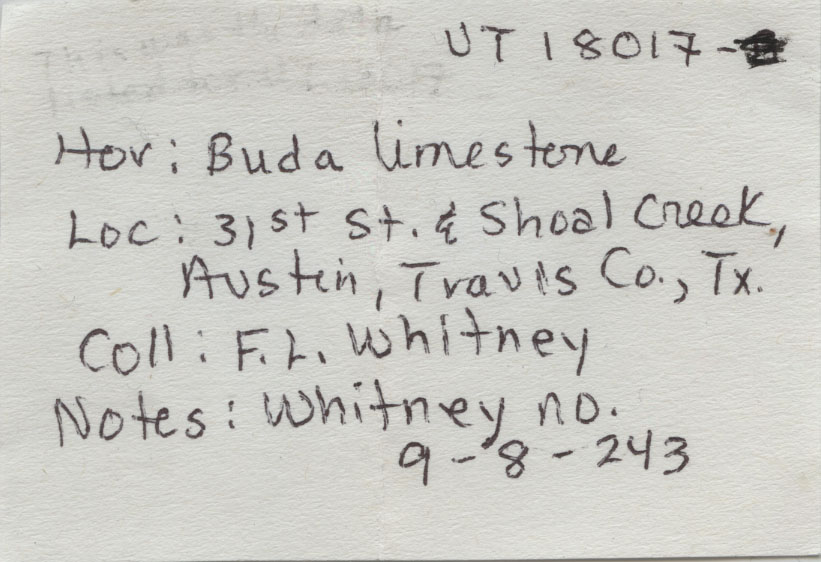 UT 18017-
Hor: Buda limestone
Loc: 31st St. & Shoal Creek,
Austin, Travis Co., Tx.
Coll: F.L. Whitney
Notes: Whitney no.
9-8-243